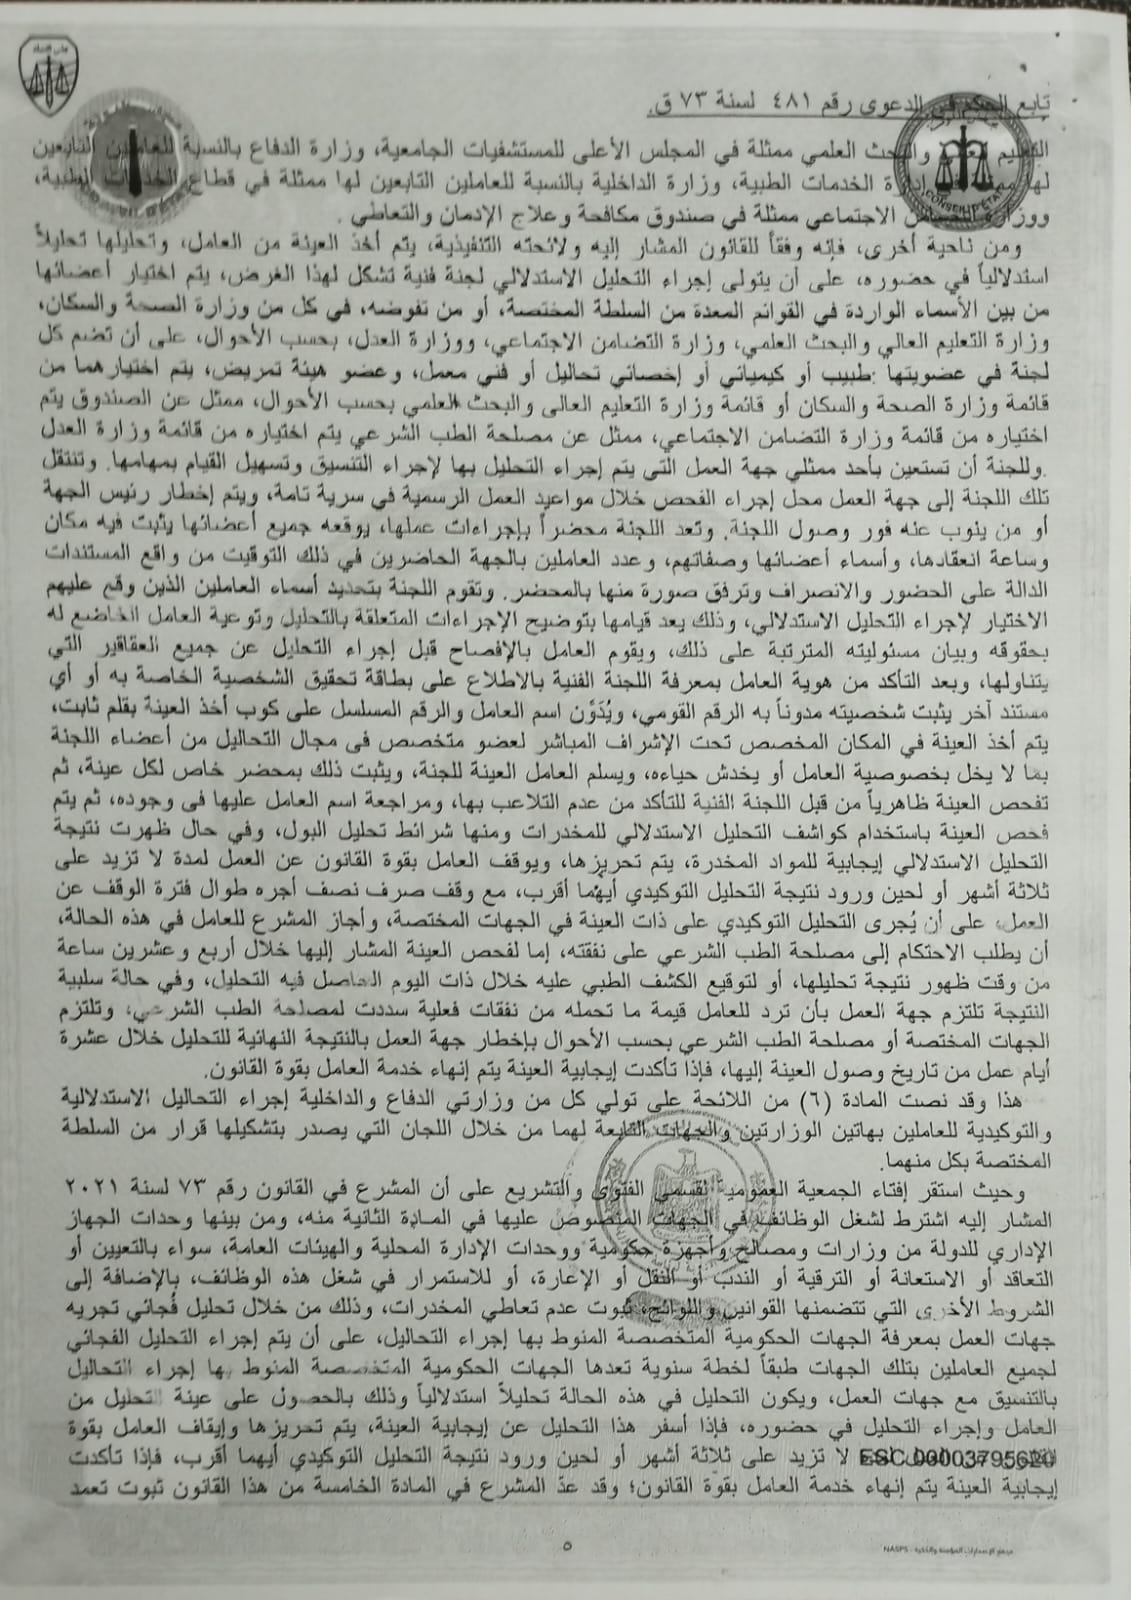 مجلس الدولة
تابع الحكم في الدعوى رقم ٤٨١ لسنة ٧٣ ق.
التعليم العالي والبحث العلمي ممثلة في المجلس الأعلى للمستشفيات الجامعية، وزارة الدفاع بالنسبة للعاملين التابعين
لها ممثلة في إدارة الخدمات الطبية، وزارة الداخلية بالنسبة للعاملين التابعين لها ممثلة في قطاع الخدمات الطبية،
ووزارة التضامن الاجتماعي ممثلة في صندوق مكافحة وعلاج الإدمان والتعاطي .
CONSEIL D'ETAT
ومن ناحية أخرى، فإنه وفقاً للقانون المشار إليه ولائحته التنفيذية، يتم أخذ العينة من العامل، وتحليلها تحليلاً
استدلالياً في حضوره، على أن يتولى إجراء التحليل الاستدلالي لجنة فنية تشكل لهذا الغرض، يتم اختيار أعضائها
من بين الأسماء الواردة في القوائم المعدة من السلطة المختصة، أو من تفوضه، في كل من وزارة الصحة والسكان،
وزارة التعليم العالي والبحث العلمي، وزارة التضامن الاجتماعي، ووزارة العدل، بحسب الأحوال، على أن تضم كل
لجنة في عضويتها :طبيب أو كيميائي أو إخصائي تحاليل أو فني معمل، وعضو هيئة تمريض، يتم اختيارهما من
قائمة وزارة الصحة والسكان أو قائمة وزارة التعليم العالى والبحث العلمي بحسب الأحوال، ممثل عن الصندوق يتم
اختياره من قائمة وزارة التضامن الاجتماعي، ممثل عن مصلحة الطب الشرعي يتم اختياره من قائمة وزارة العدل
.وللجنة أن تستعين بأحد ممثلي جهة العمل التى يتم إجراء التحليل بها لإجراء التنسيق وتسهيل القيام بمهامها. وتنتقل
تلك اللجنة إلى جهة العمل محل إجراء الفحص خلال مواعيد العمل الرسمية في سرية تامة، ويتم إخطار رئيس الجهة
أو من ينوب عنه فور وصول اللجنة. وتعد اللجنة محضراً بإجراءات عملها، يوقعه جميع أعضائها يثبت فيه مكان
وساعة انعقادها، وأسماء أعضائها وصفاتهم، وعدد العاملين بالجهة الحاضرين في ذلك التوقيت من واقع المستندات
الدالة على الحضور والانصراف وترفق صورة منها بالمحضر. وتقوم اللجنة بتحديد أسماء العاملين الذين وقع عليهم
الاختيار لإجراء التحليل الاستدلالي، وذلك بعد قيامها بتوضيح الإجراءات المتعلقة بالتحليل وتوعية العامل الخاضع له
بحقوقه وبيان مسئوليته المترتبة على ذلك، ويقوم العامل بالإفصاح قبل إجراء التحليل عن جميع العقاقير التي
يتناولها، وبعد التأكد من هوية العامل بمعرفة اللجنة الفنية بالاطلاع على بطاقة تحقيق الشخصية الخاصة به أو أي
مستند آخر يثبت شخصيته مدوناً به الرقم القومي، ويُدَوَّن اسم العامل والرقم المسلسل على كوب أخذ العينة بقلم ثابت،
يتم أخذ العينة في المكان المخصص تحت الإشراف المباشر لعضو متخصص فى مجال التحاليل من أعضاء اللجنة
بما لا يخل بخصوصية العامل أو يخدش حياءه، ويسلم العامل العينة للجنة، ويثبت ذلك بمحضر خاص لكل عينة، ثم
تفحص العينة ظاهرياً من قبل اللجنة الفنية للتأكد من عدم التلاعب بها، ومراجعة اسم العامل عليها فى وجوده، ثم يتم
فحص العينة باستخدام كواشف التحليل الاستدلالي للمخدرات ومنها شرائط تحليل البول، وفي حال ظهرت نتيجة
التحليل الاستدلالي إيجابية للمواد المخدرة، يتم تحريزها، ويوقف العامل بقوة القانون عن العمل لمدة لا تزيد على
ثلاثة أشهر أو لحين ورود نتيجة التحليل التوكيدي أيهما أقرب، مع وقف صرف نصف أجره طوال فترة الوقف عن
العمل، على أن يُجرى التحليل التوكيدي على ذات العينة في الجهات المختصة، وأجاز المشرع للعامل في هذه الحالة،
أن يطلب الاحتكام إلى مصلحة الطب الشرعي على نفقته، إما لفحص العينة المشار إليها خلال أربع وعشرين ساعة
من وقت ظهور نتيجة تحليلها، أو لتوقيع الكشف الطبي عليه خلال ذات اليوم الحاصل فيه التحليل، وفي حالة سلبية
النتيجة تلتزم جهة العمل بأن ترد للعامل قيمة ما تحمله من نفقات فعلية سددت لمصلحة الطب الشرعي، وتلتزم
الجهات المختصة أو مصلحة الطب الشرعي بحسب الأحوال بإخطار جهة العمل بالنتيجة النهائية للتحليل خلال عشرة
أيام عمل من تاريخ وصول العينة إليها، فإذا تأكدت إيجابية العينة يتم إنهاء خدمة العامل بقوة القانون.
هذا وقد نصت المادة (٦) من اللائحة على تولي كل من وزارتي الدفاع والداخلية إجراء التحاليل الاستدلالية
والتوكيدية للعاملين بهاتين الوزارتين والجهات التابعة لهما من خلال اللجان التي يصدر بتشكيلها قرار من السلطة
المختصة بكل منهما.
وحيث استقر إفتاء الجمعية العمومية لقسمي الفتوى والتشريع على أن المشرع في القانون رقم ٧٣ لسنة ٢٠٢١
المشار إليه اشترط لشغل الوظائف في الجهات المنصوص عليها في المادة الثانية منه، ومن بينها وحدات الجهاز
الإداري للدولة من وزارات ومصالح وأجهزة حكومية ووحدات الإدارة المحلية والهيئات العامة، سواء بالتعيين أو
التعاقد أو الاستعانة أو الترقية أو الندب أو النقل أو الإعارة، أو للاستمرار في شغل هذه الوظائف، بالإضافة إلى
الشروط الأخرى التي تتضمنها القوانين واللوائح، ثبوت عدم تعاطي المخدرات، وذلك من خلال تحليل فُجائي تجريه
جهات العمل بمعرفة الجهات الحكومية المتخصصة المنوط بها إجراء التحاليل، على أن يتم إجراء التحليل الفجائي
لجميع العاملين بتلك الجهات طبقاً لخطة سنوية تعدها الجهات الحكومية المتخصصة المنوط بها إجراء التحاليل
بالتنسيق مع جهات العمل، ويكون التحليل في هذه الحالة تحليلاً استدلالياً وذلك بالحصول على عينة التحليل من
العامل وإجراء التحليل في حضوره، فإذا أسفر هذا التحليل عن إيجابية العينة، يتم تحريزها وإيقاف العامل بقوة
ESC 00003795620 لا تزيد على ثلاثة أشهر أو لحين ورود نتيجة التحليل التوكيدي أيهما أقرب، فإذا تأكدت
إيجابية العينة يتم إنهاء خدمة العامل بقوة القانون؛ وقد عدّ المشرع في المادة الخامسة من هذا القانون ثبوت تعمد
٥
مجمع الإصدارات المؤمنة والذكية - NASPS